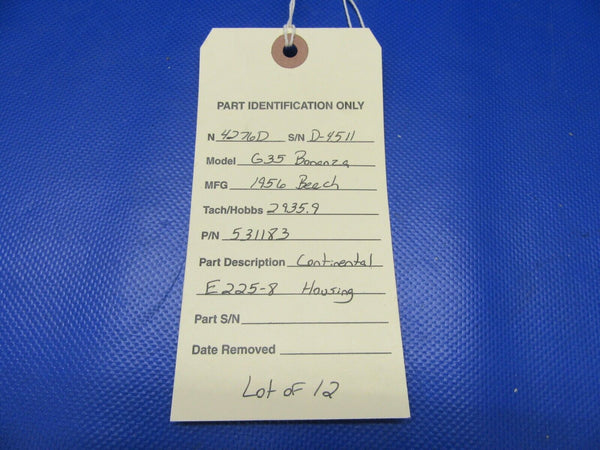 PART IDENTIFICATION ONLY
N 4276D S/N D-4511
Model G35 Bonanza
MFG 1956 Beech
Tach/Hobbs 2935.9
P/N 531183
Part Description Continental
E225-8 Housing
Part S/N
Date Removed
Lot of 12